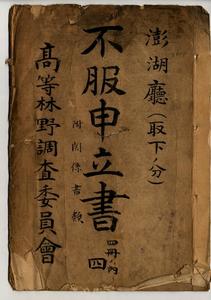 澎湖廳(取下ノ分)
不服申立書
附関係書類
四冊ノ内
四
高等林野調査委員會